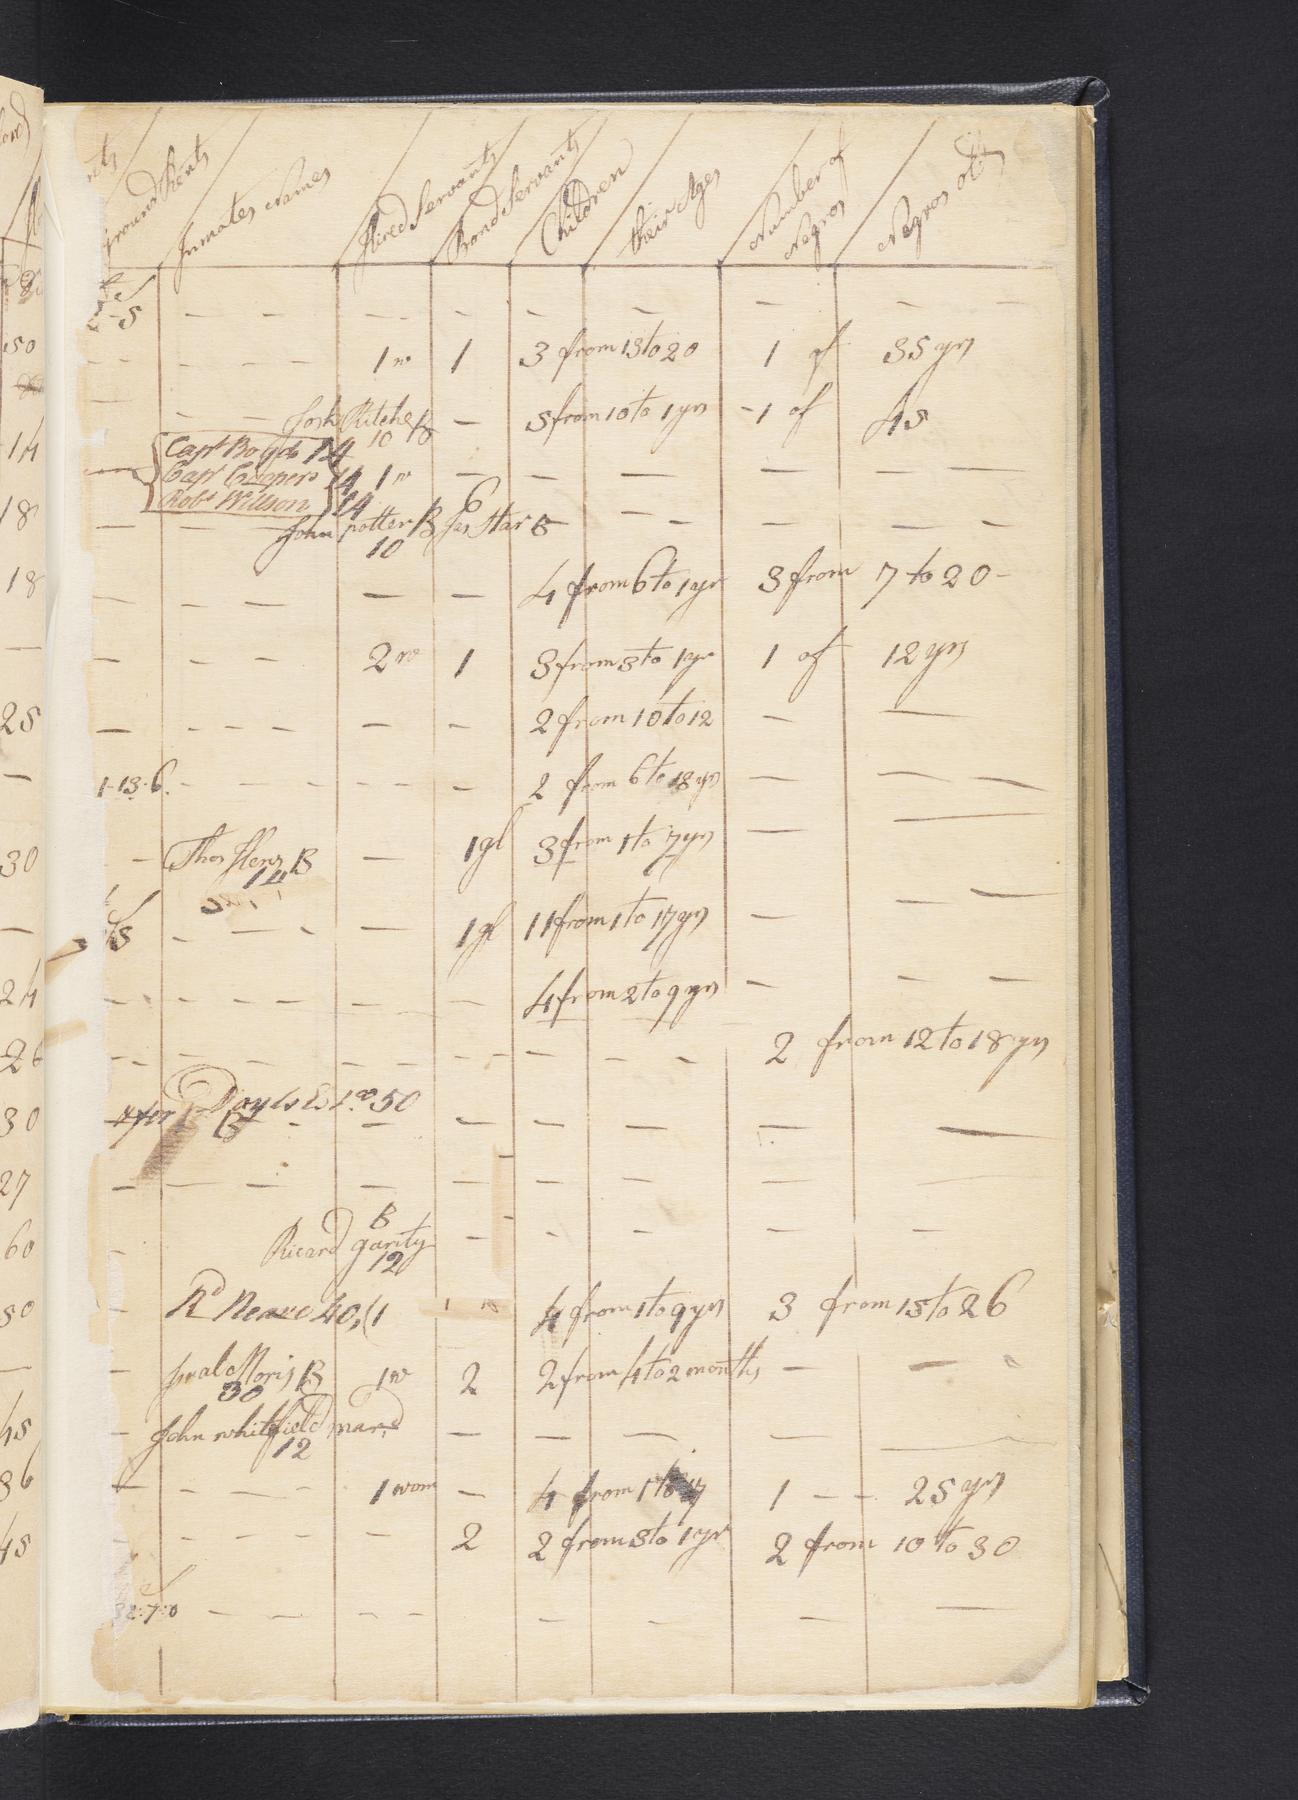 Ground Rents Inmates Names Hired Servants Bond Servants Children their Ages Number of Negros Negros old
5 — — — — — — — — — — —
— — — — 1 w 1 3 from 13 to 20 1 of 35 yrs
— — — Josh Ritche B 10 — 5 from 10 to 1 yrs - 1 of 45
Capt Boyds 14
Capt Coopers 14 1 w — — — — — —
Robt Willson 14
— — John potter B 10 Jas Star B 6 — — — — —
— — — — — — 4 from 6 to 1 yr 3 from 7 to 20 -
— — — — 2 w 1 3 from 3 to 1 yr 1 of 12 yrs
— — — — — — 2 from 10 to 12 — —
1-13-6. - — — — — — — 2 from 6 to 18 yrs — — —
— Thos B 14 — 1 gl 3 from 1 to 7 yrs — —
5 - — - — 1 gl 11 from 1 to 17 yrs — — —
- - — — — — — 4 from 2 to 9 yrs — — —
- - — — — — — - - — — - 2 from 12 to 18 yrs
50
B - — — — — — —
— — — — — — — — —
— Ricard garity B 12 — - — — —
Rd Neave 40, (1 4 from 1 to 9 yrs 3 from 15 to 26
— Moris B 30 1 w 2 2 from 4 to 2 months — —
— John whitfield mard 12 — — — — —
— - — — — 1 wom — 4 from 1 to 1 - — 25 yrs
— - — — — — 2 2 from 3 to 1 yr 2 from 10 to 30
32:7:0 — — - - — — — —
50
14
18
18
—
25
—
30
—
24
26
30
27
60
50
—
45
36
45